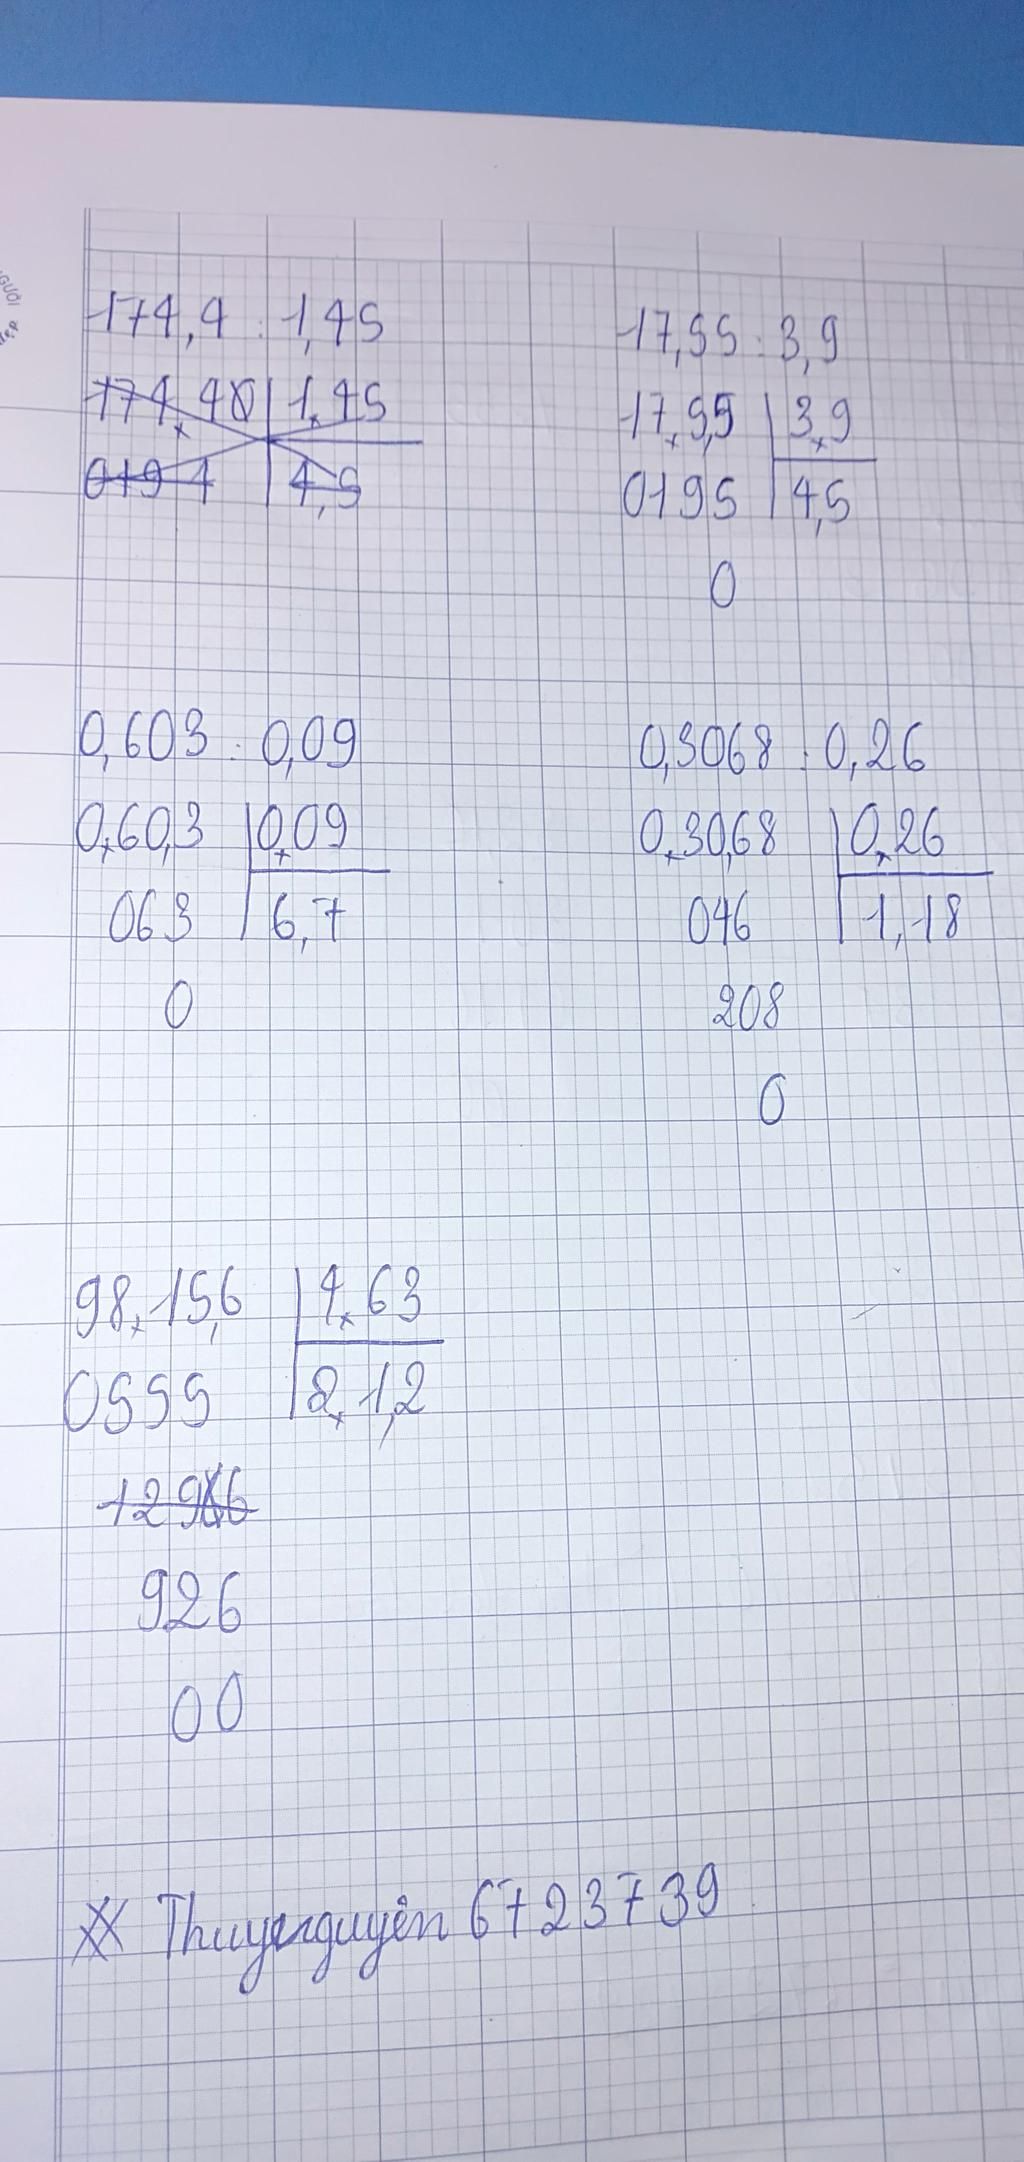 174,4 : 1,45
174,40 1,45
0194 4,5
17,55 : 3,9
17,5,5 3,9
0195 4,5
0
0,603 : 0,09
0,60,3 0,09
063 6,7
0
0,3068 : 0,26
0,30,68 0,26
046 1,18
208
0
98,15,6 4,63
0555 2,1,2
926
00
Thuyenguyên 6723739